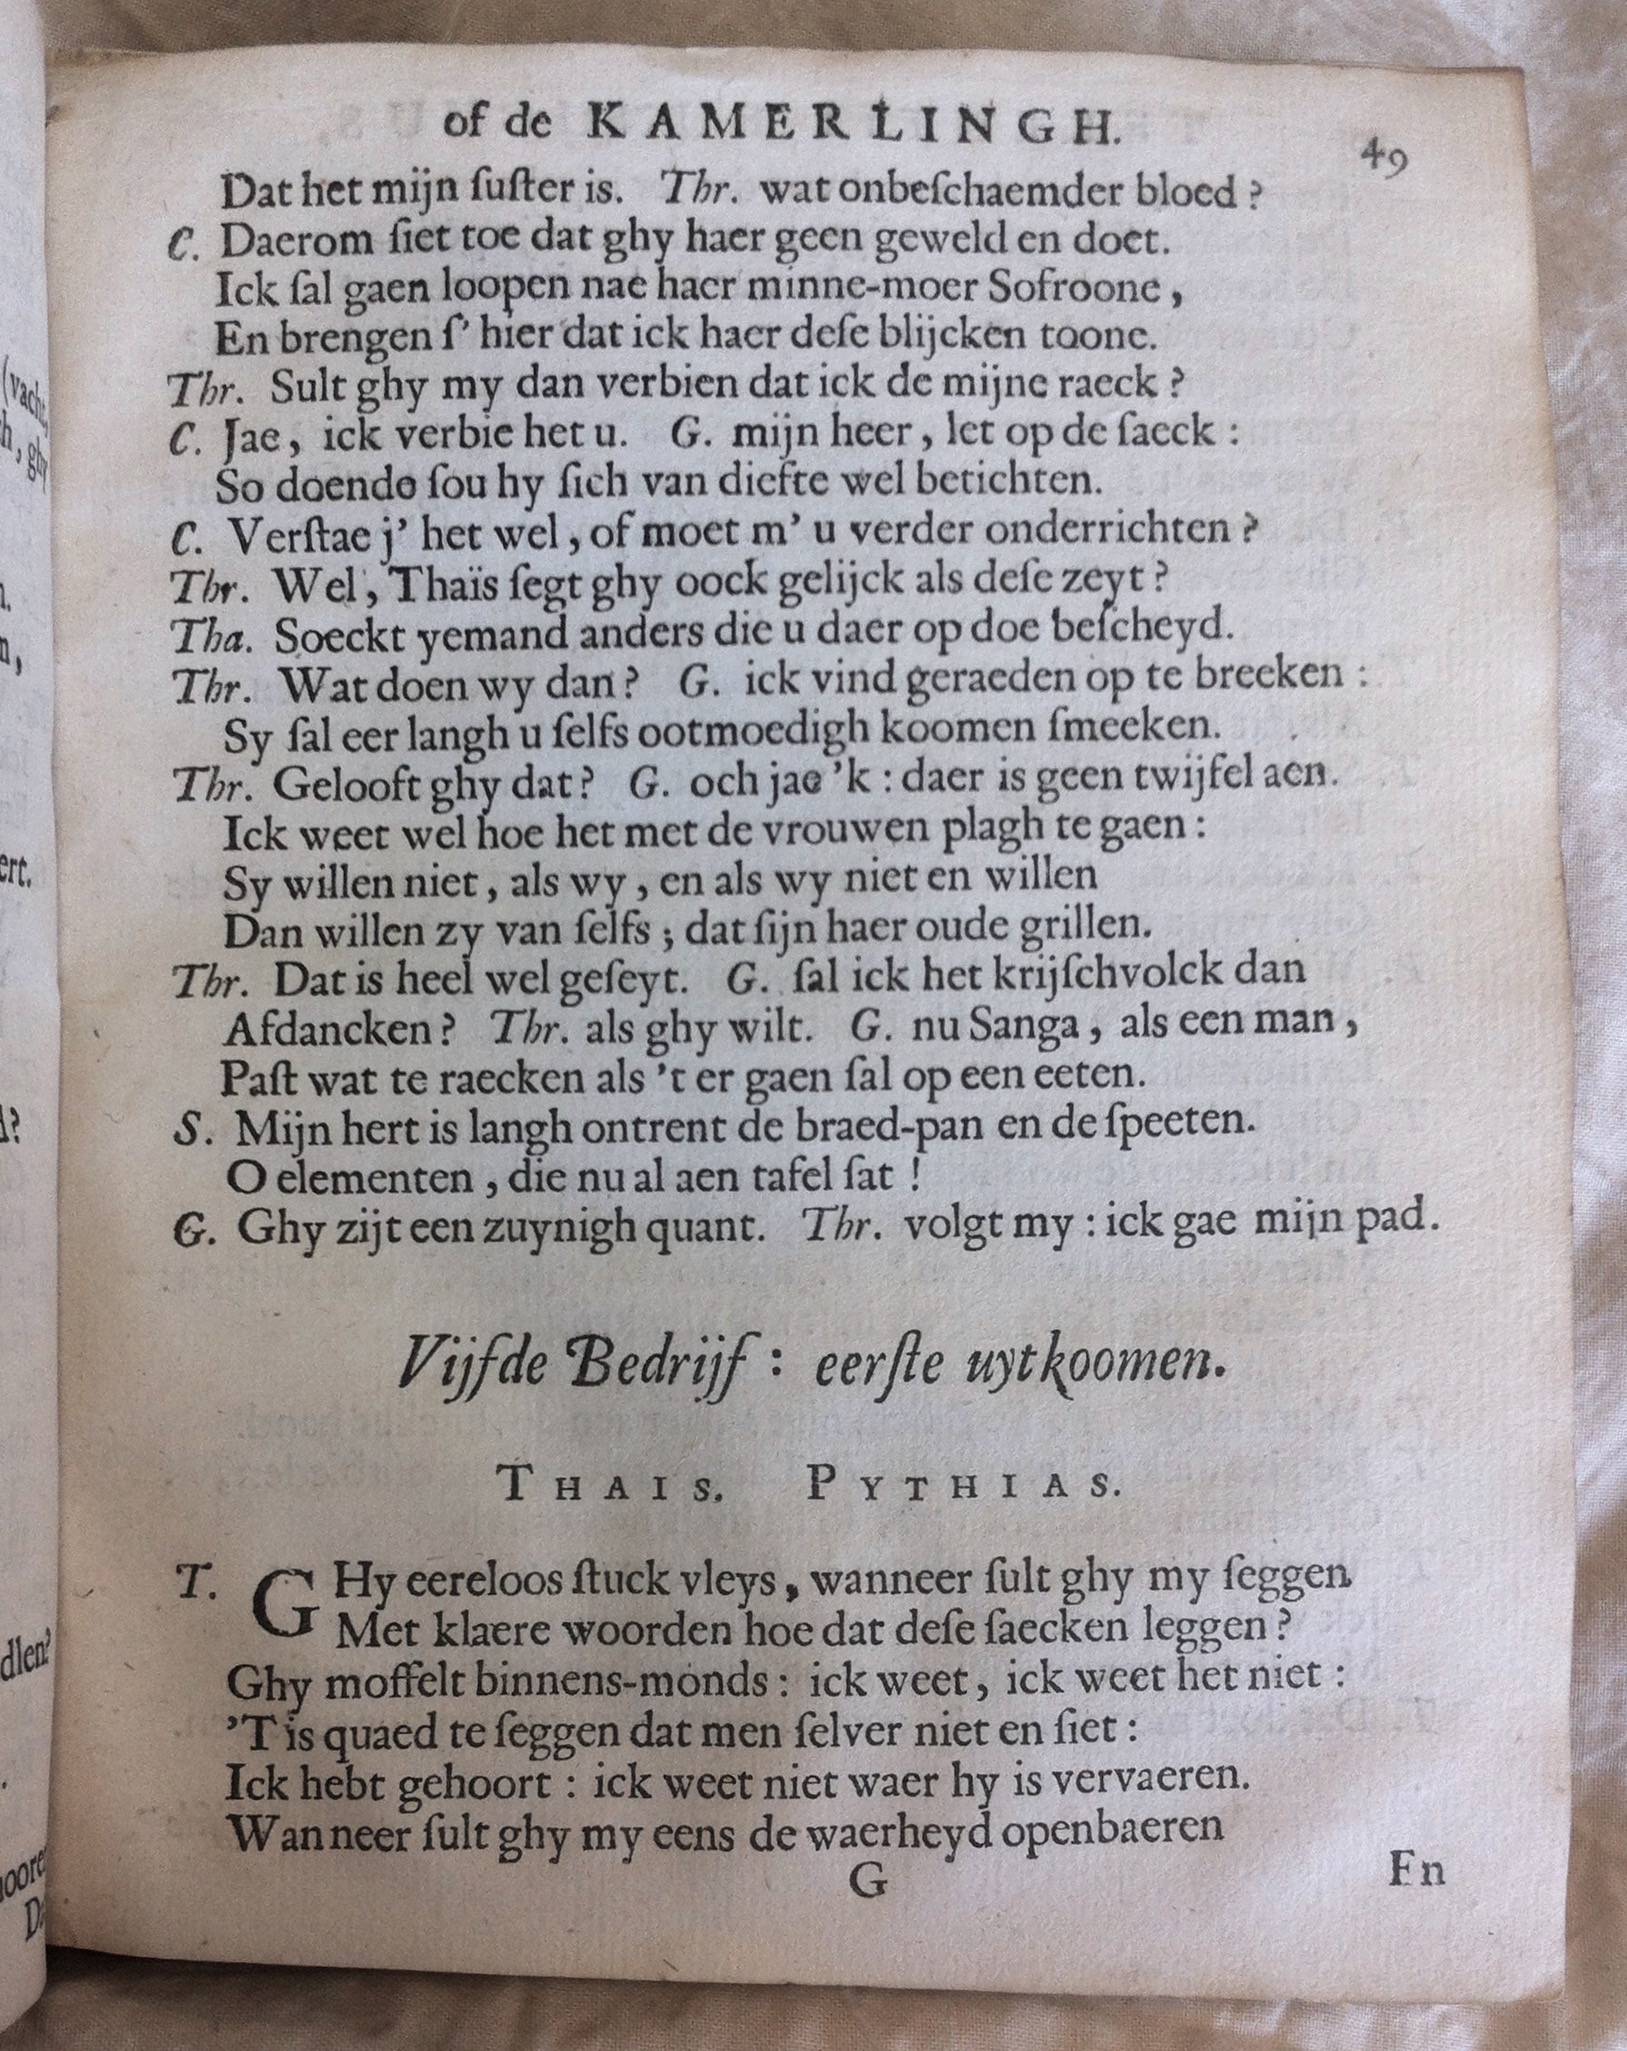 of de KAMERLINGH. 49
Dat het mijn ſuſter is. Thr. wat onbeſchaemder bloed?
C. Daerom ſiet toe dat ghy haer geen geweld en doet.
Ick ſal gaen loopen nae haer minne-moer Sofroone,
En brengen ſ' hier dat ick haer deſe blijcken toone.
Thr. Sult ghy my dan verbien dat ick de mijne raeck?
C. Jae, ick verbie het u. G. mijn heer, let op de ſaeck:
So doende ſou hy ſich van diefte wel betichten.
C. Verſtae j' het wel, of moet m' u verder onderrichten?
Thr. Wel, Thaïs ſegt ghy oock gelijck als deſe zeyt?
Tha. Soeckt yemand anders die u daer op doe beſcheyd.
Thr. Wat doen wy dan? G. ick vind geraeden op te breeken:
Sy ſal eer langh u ſelfs ootmoedigh koomen ſmeeken.
Thr. Gelooft ghy dat? G. och jae 'k: daer is geen twijfel aen.
Ick weet wel hoe het met de vrouwen plagh te gaen:
Sy willen niet, als wy, en als wy niet en willen
Dan willen zy van ſelfs; dat ſijn haer oude grillen.
Thr. Dat is heel wel geſeyt. G. ſal ick het krijſchvolck dan
Afdancken? Thr. als ghy wilt. G. nu Sanga, als een man,
Paſt wat te raecken als 't er gaen ſal op een eeten.
S. Mijn hert is langh ontrent de braed-pan en de ſpeeten.
O elementen, die nu al aen tafel ſat!
G. Ghy zijt een zuynigh quant. Thr. volgt my: ick gae mijn pad.
Vijfde Bedrijf: eerſte uytkoomen.
THAIS. PYTHIAS.
T. GHy eereloos ſtuck vleys, wanneer ſult ghy my ſeggen
Met klaere woorden hoe dat deſe ſaecken leggen?
Ghy moffelt binnens-monds: ick weet, ick weet het niet:
'T is quaed te ſeggen dat men ſelver niet en ſiet:
Ick hebt gehoort: ick weet niet waer hy is vervaeren.
Wanneer ſult ghy my eens de waerheyd openbaeren
G En